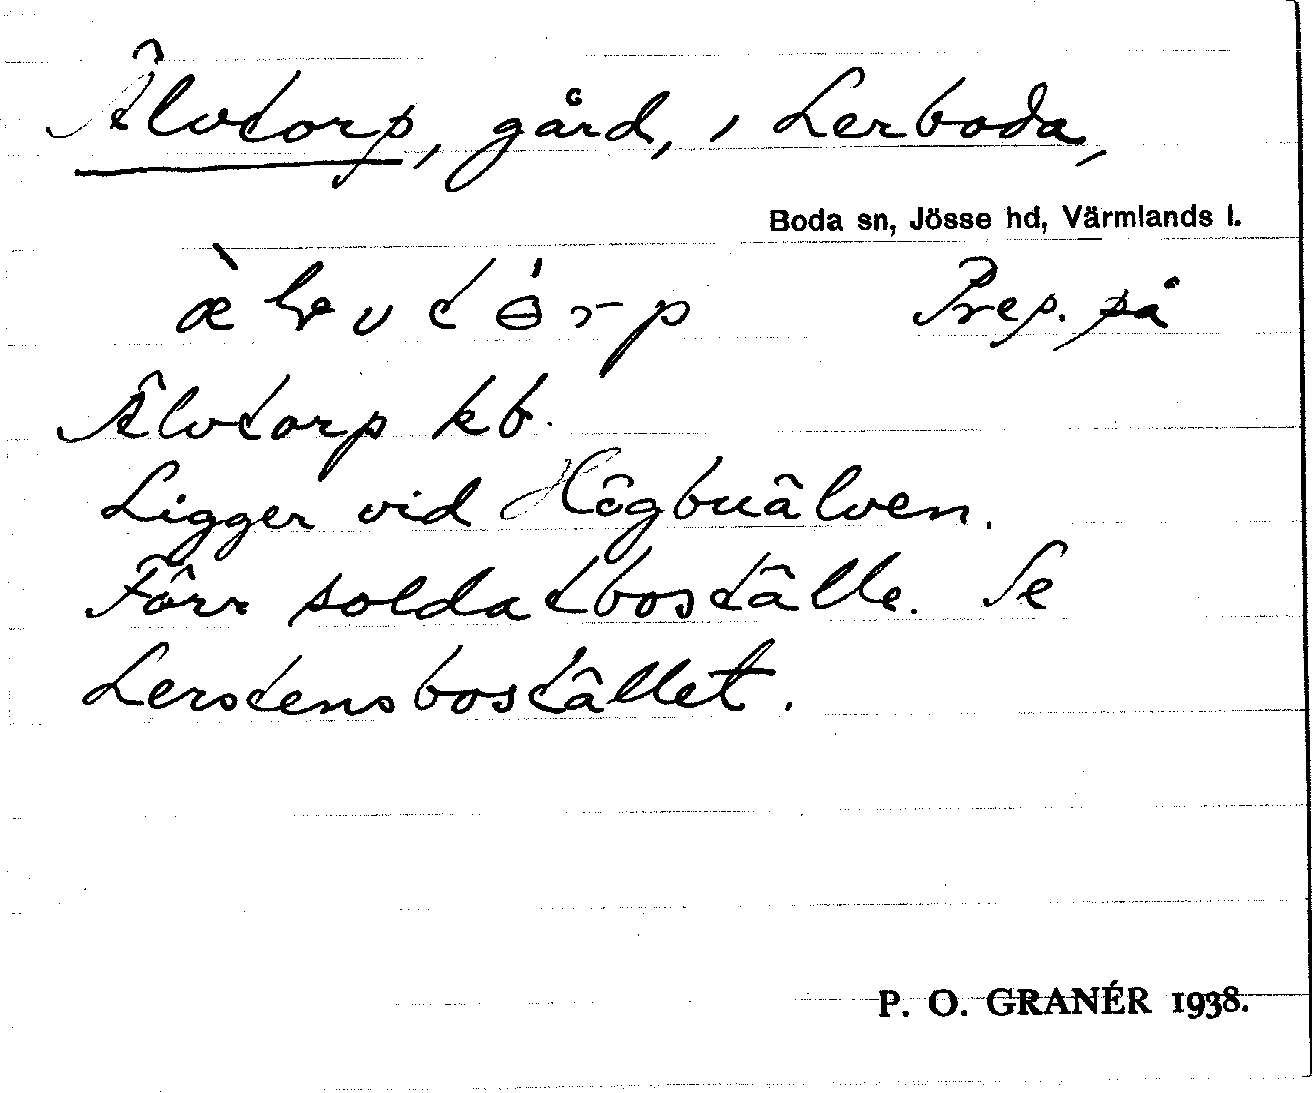 Älvtorp, gård, i Lerboda,
Boda sn, Jösse hd, Värmlands l.
Prep. på
Älvtorp kb.
Ligger vid Högbuälven.
Förr soldatboställe. Se
Lerstensbostället.
P. O. GRANÉR 1938.